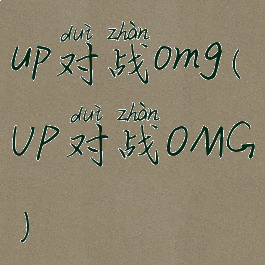 duì zhàn
up对战omg(
duì zhàn
UP对战OMG
)